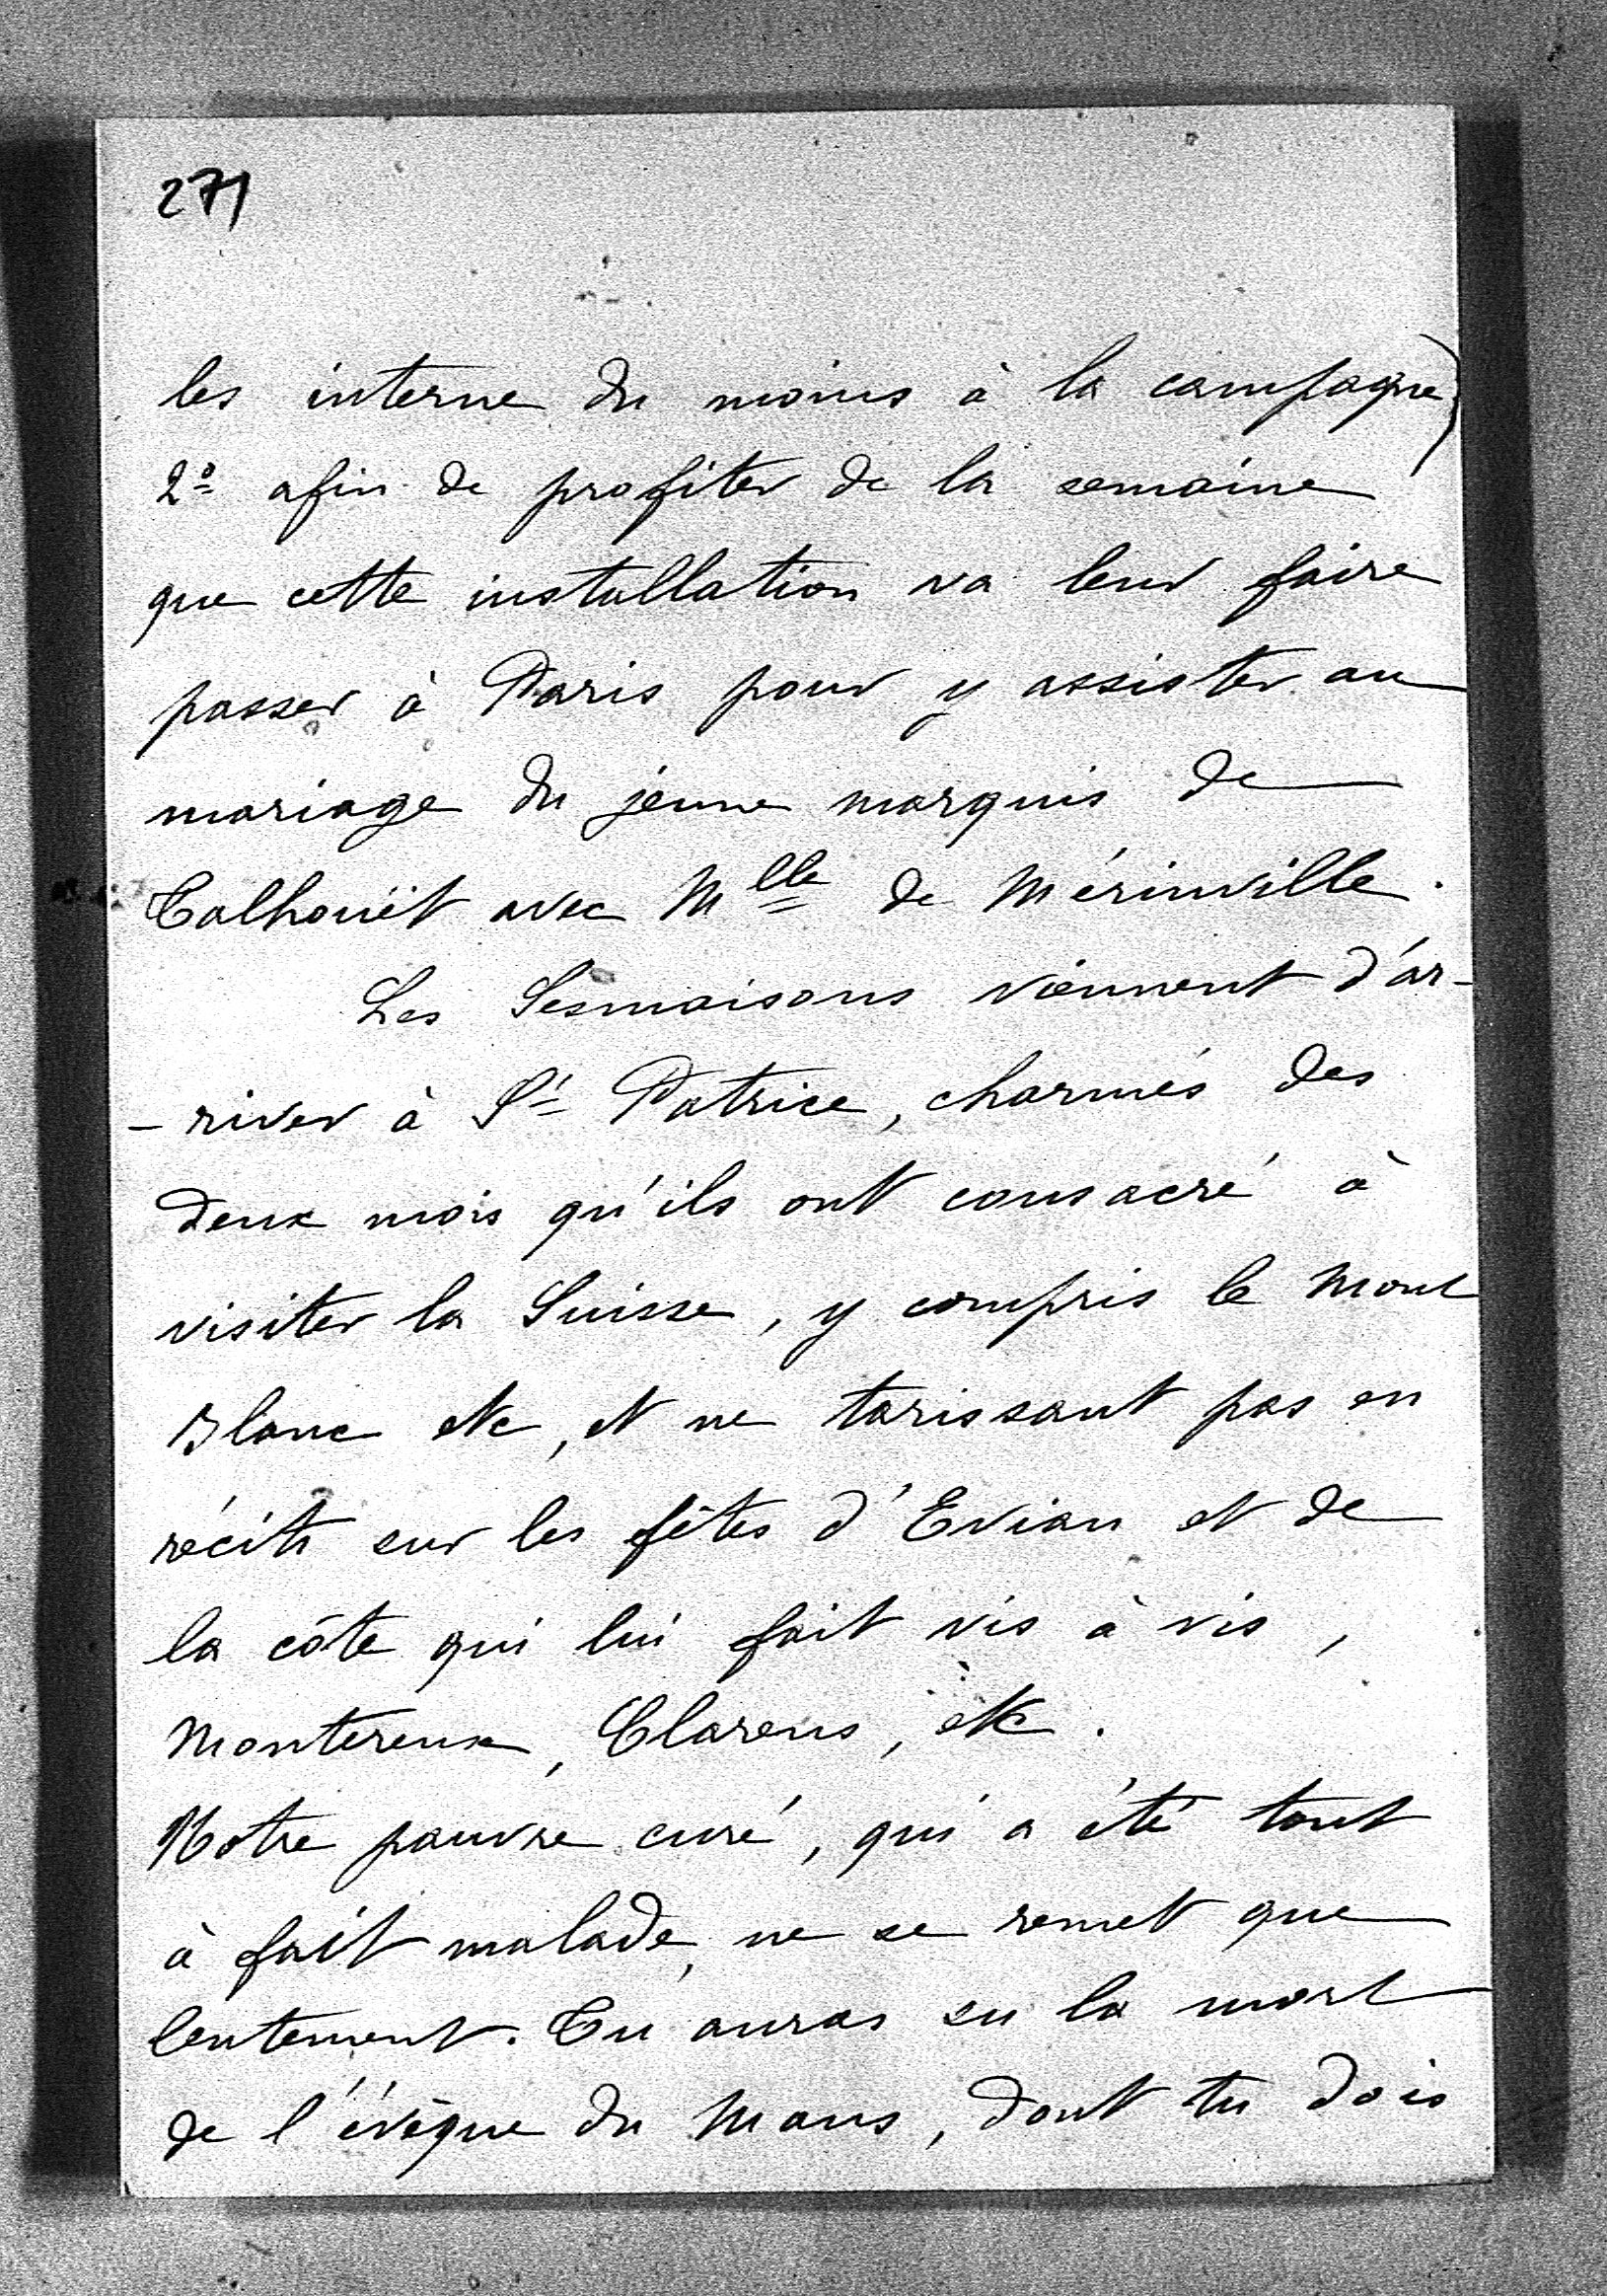 271
les interne du moins à la campagne)
2º afin de profiter de la semaine
que cette installation va leur faire
passer à Paris pour y assister au
mariage du jeune marquis de
Talhouët avec Mlle de Mérinville.
Les Lesmaisons viennent d'ar-
-river à St Patrice, charmés des
deux mois qu'ils ont consacré à
visiter la Suisse, y compris le Mont
Blanc etc, et ne tarissant pas en
récits sur les fêtes d'Evian et de
la côte qui lui fait vis à vis,
Montereux, Clarens, etc.
Notre pauvre curé, qui a été tout
à fait malade, ne se remet que
lentement. Tu auras su la mort
de l'évêque du Mans, dont tu dois